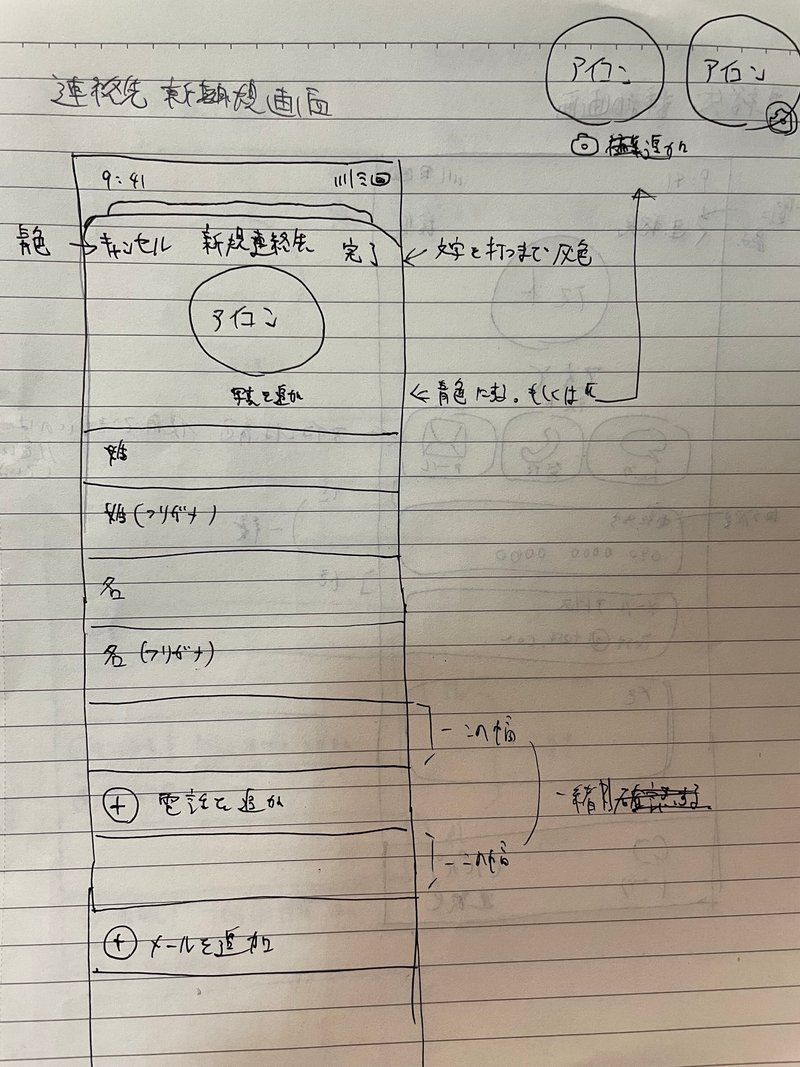 連絡先 新規画面
アイコン
アイコン
追加
9:41
青色
キャンセル 新規連絡先 完了
文字を打つまで灰色
アイコン
写真を追加
青色にする。もしくは
姓
姓(フリガナ)
名
名(フリガナ)
この幅
+ 電話を追加
一緒
この幅
+ メールを追加